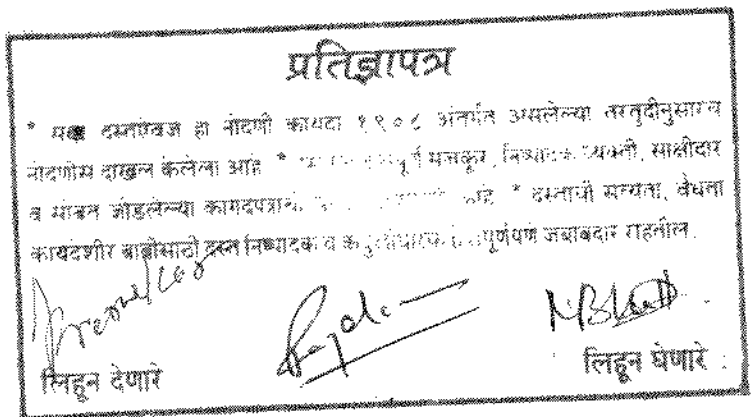 प्रतिज्ञापत्र
* दस्तऐवज हा नोंदणी कायदा १९०८ अंतर्गत असलेल्या तरतुदीनुसारच
नोंदणीस दाखल केलेला आहे. * मजकूर, निष्पादक व्यक्ती, साक्षीदार
व सोबत जोडलेल्या कागदपत्रांची आहे * दस्ताची सत्यता, वैधता
कायदेशीर बाबींसाठी दस्त निष्पादक व कबुलीधारक हे संपूर्णपणे जबाबदार राहतील.
लिहून देणारे
लिहून घेणारे :